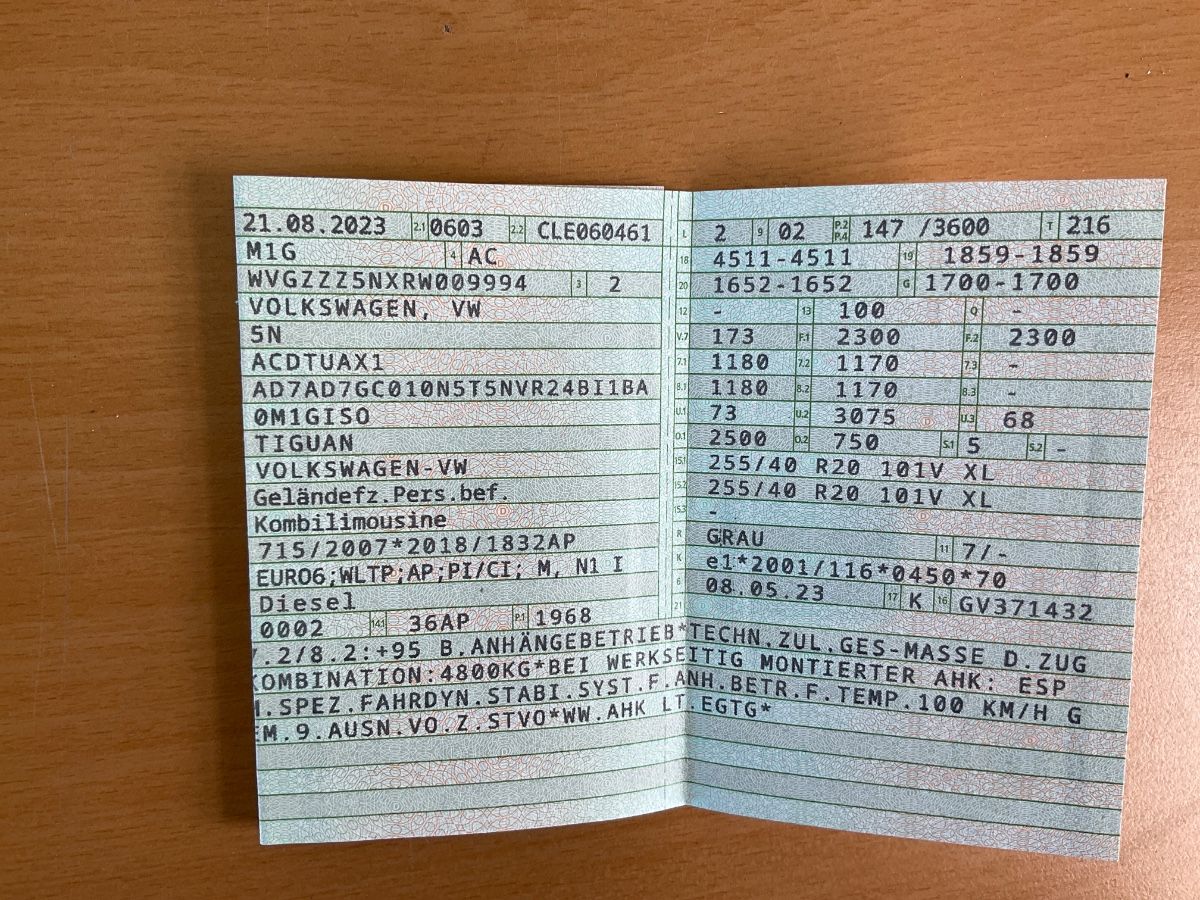 21.08.2023 2.1 0603 2.2 CLE060461
M1G 4 AC
WVGZZZ5NXRW009994 3 2
VOLKSWAGEN, VW
5N
ACDTUAX1
AD7AD7GC010N5T5NVR24BI1BA
0M1GISO
TIGUAN
VOLKSWAGEN-VW
Geländefz.Pers.bef.
Kombilimousine
715/2007*2018/1832AP
EURO6;WLTP;AP;PI/CI; M, N1 I
Diesel
0002 14.1 36AP P.1 1968
L 2 9 02 P.2 P.4 147 /3600 T 216
18 4511-4511 19 1859-1859
20 1652-1652 G 1700-1700
12 - 13 100 Q -
V.7 173 F.1 2300 F.2 2300
7.1 1180 7.2 1170 7.3 -
8.1 1180 8.2 1170 8.3 -
U.1 73 U.2 3075 U.3 68
O.1 2500 O.2 750 S.1 5 S.2 -
15.1 255/40 R20 101V XL
15.2 255/40 R20 101V XL
15.3 -
R GRAU 11 7/-
K e1*2001/116*0450*70
6 08.05.23 17 K 16 GV371432
21
.2/8.2:+95 B.ANHÄNGEBETRIEB*TECHN.ZUL.GES-MASSE D.ZUG
KOMBINATION:4800KG*BEI WERKSEITIG MONTIERTER AHK: ESP
.SPEZ.FAHRDYN.STABI.SYST.F.ANH.BETR.F.TEMP.100 KM/H G
EM.9.AUSN.VO.Z.STVO*WW.AHK LT.EGTG*